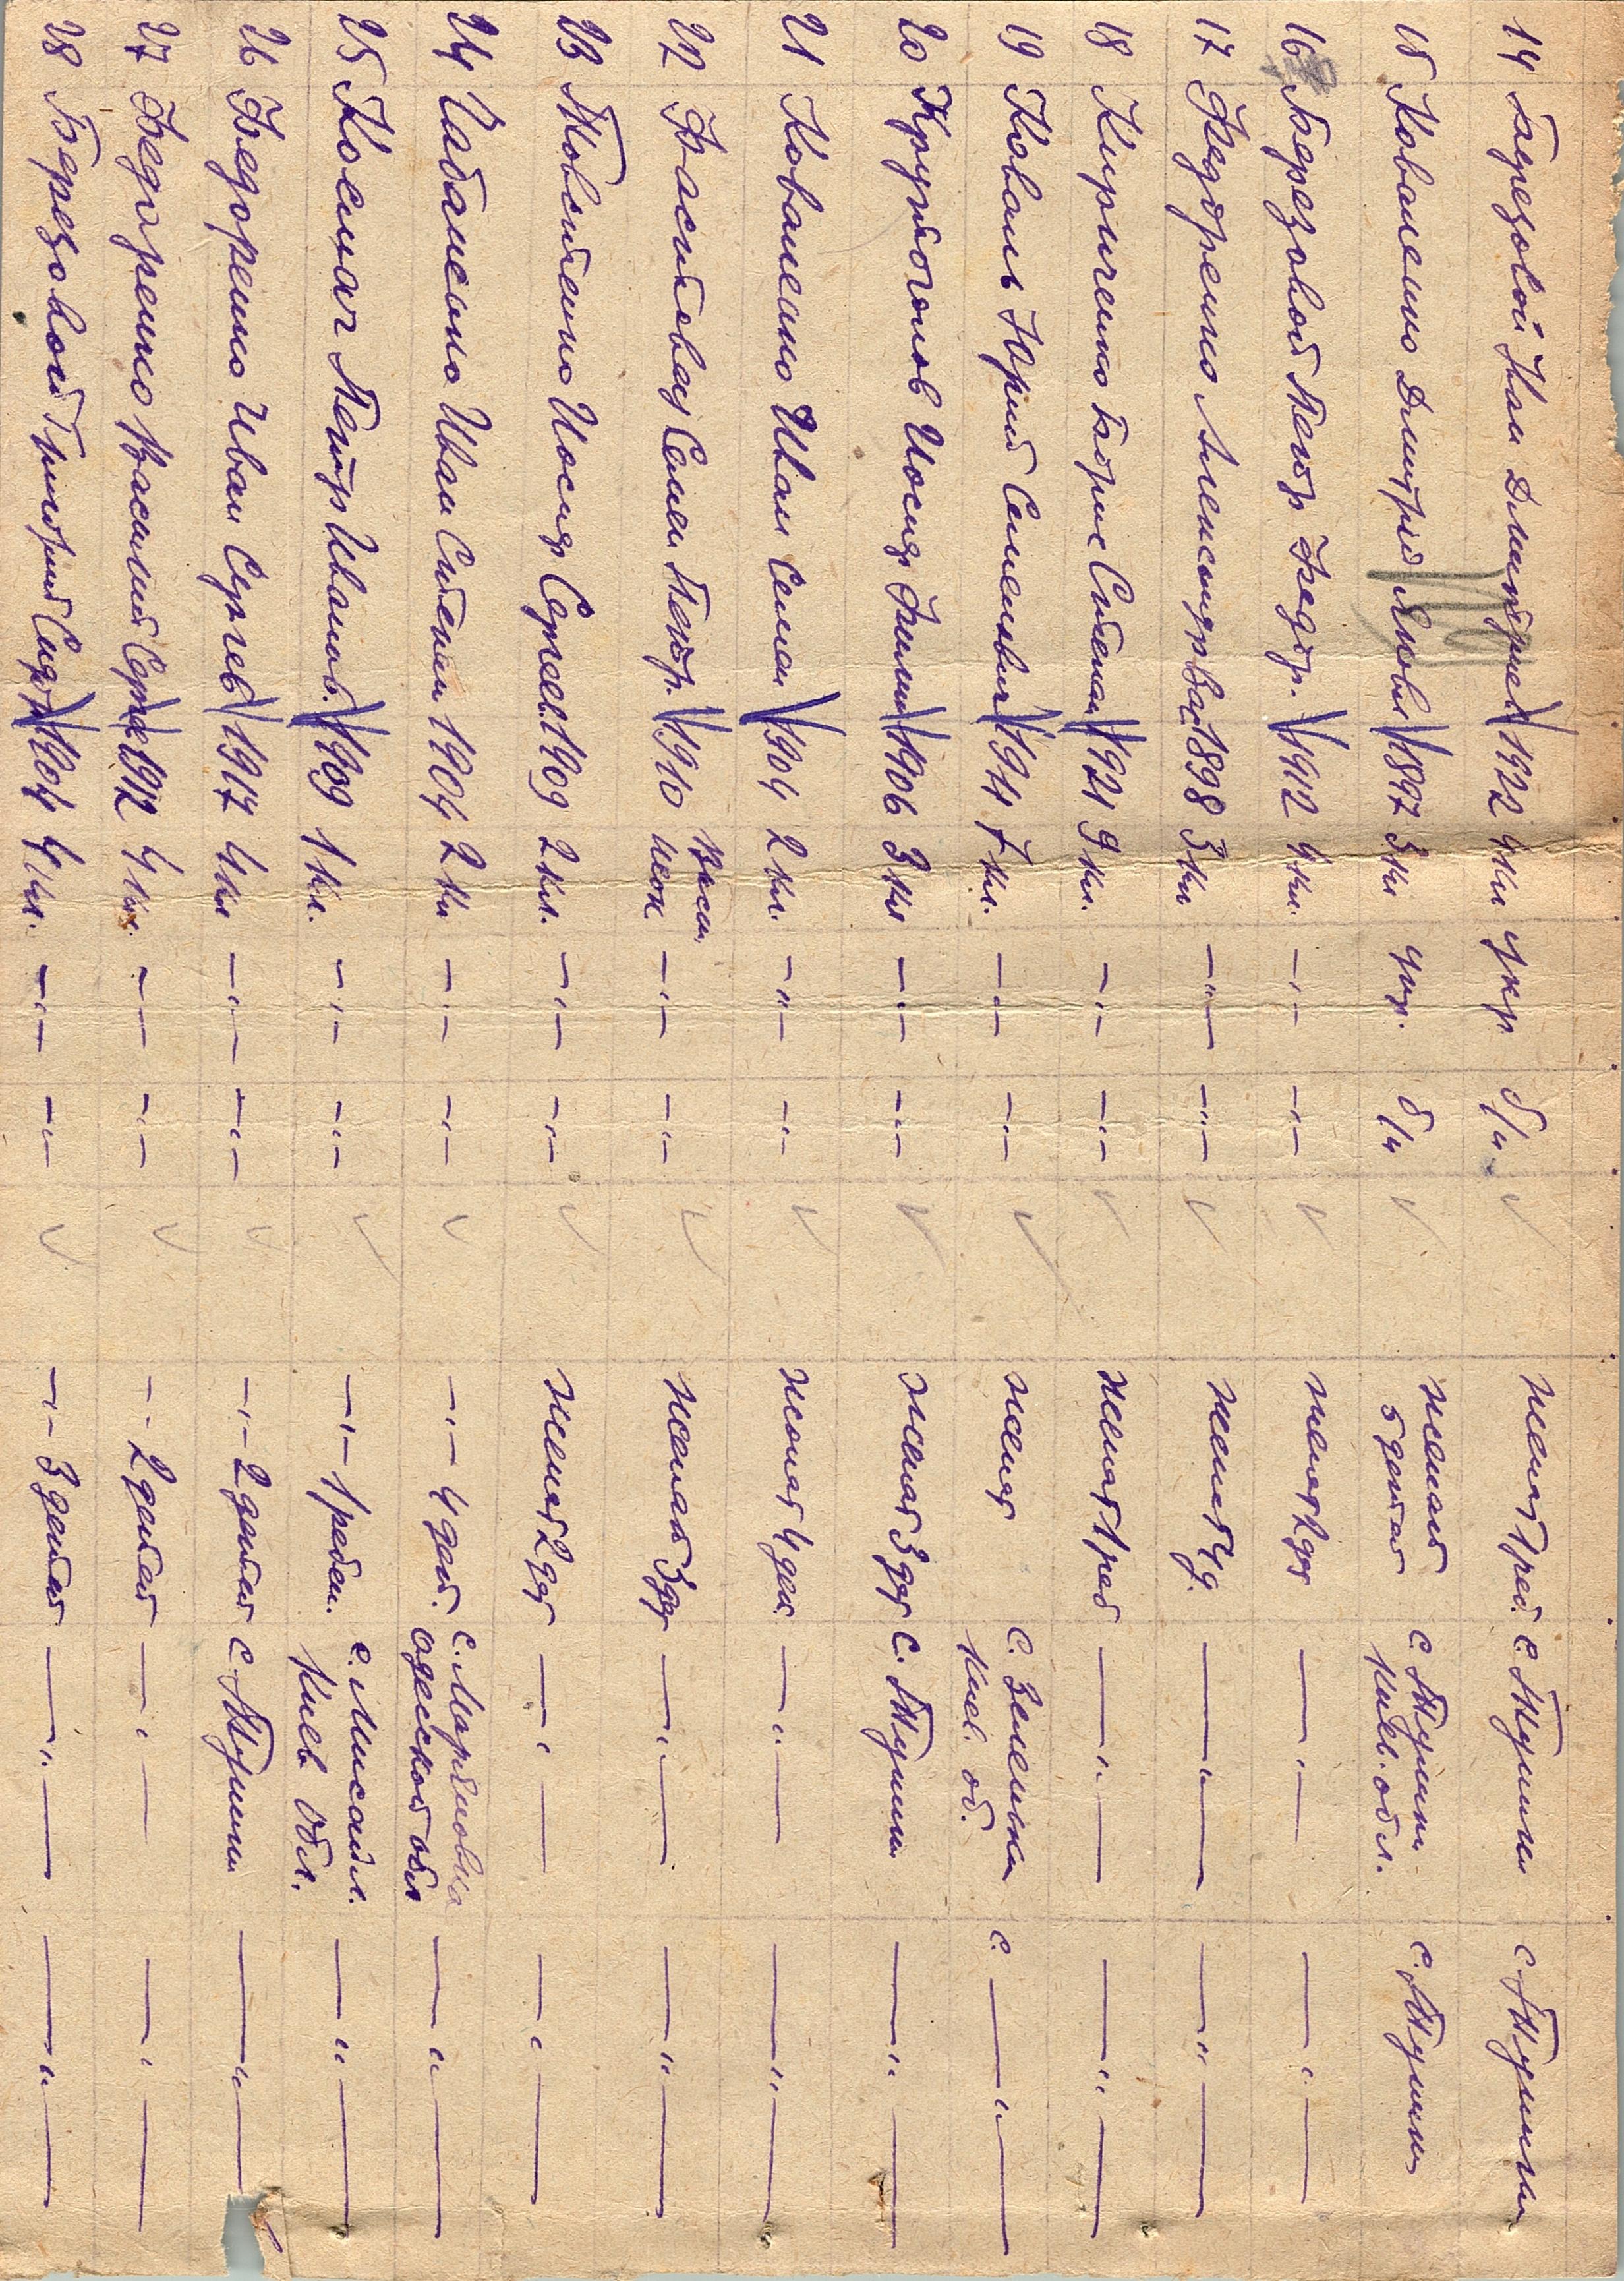 14 Березовой Иван Дмитриев 1922 4 кл укр. б/п жена 1 реб. с. Тулинцы с. Тулинцы
15 Коваленко Дмитрий Яковл 1897 3 кл укр. б/п жена 5 детей с. Тулинцы Киев. обл. с. Тулинцы
16 Березовой Петр Федор. 1912 4 кл. -"- -"- жена 2 дет -"- -"-
17 Федоренко Александр Вас 1898 3 кл -"- -"- жена 4 д. -"- -"-
18 Кириченко Борис Степан 1921 9 кл. -"- -"- жена 1 реб -"- -"-
19 Коваль Юрий Семенович 1911 7 кл. -"- -"- жена с. Зеленьки Киев. об. с. -"-
20 Круподоль Иосиф 1906 3 кл -"- -"- жена 3 дет с. Тулинцы -"-
21 Коваленко Иван Семен 1904 2 кл. -"- -"- жена 4 дет. -"- -"-
22 Семен Петр. 1910 -"- -"- жена 3 дет -"- -"-
23 Товстенко Иосиф Сергеев. 1909 2 кл. -"- -"- жена 2 дет -"- -"-
24 Чабаненко Иван Степан 1904 2 кл -"- -"- -"- 4 дет. с. Мартыновка Одеской обл -"-
25 Космач Петр Иванов. 1909 1 кл. -"- -"- -"- 1 ребен. с. Мисайл. Киев обл. -"-
26 Федоренко Иван Сергеев 1917 4 кл -"- -"- -"- 2 детей с. Тулинцы -"-
27 Федоренко Василий Серге 1912 4 кл. -"- -"- -"- 2 детей -"- -"-
28 Березовой Григорий Сидор 1904 4 кл. -"- -"- -"- 3 детей -"- -"-